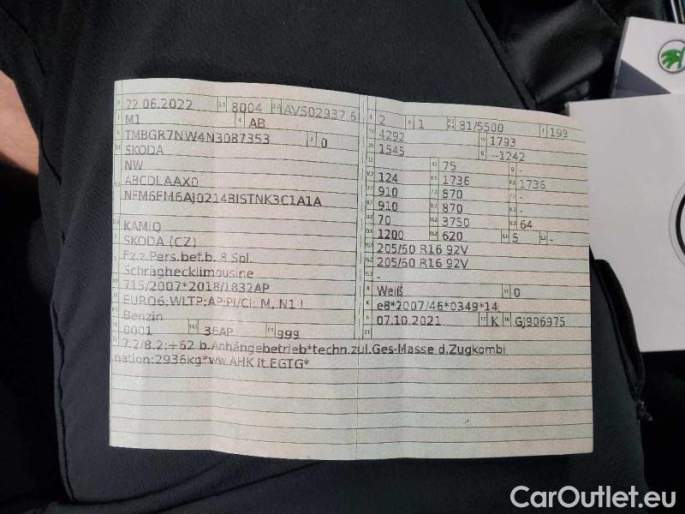 22.06.2022 8004 AVS02937 6
M1 AB
TMBGR7NW4N3087353 0
SKODA
NW
ABCDLAAX0
NFM6FM6AJ0214BISTNK3C1A1A
KAMIQ
SKODA (CZ)
Fz.z.Pers.bef.b. 8 Spl.
Schräghecklimousine
715/2007*2018/1832AP
EURO6;WLTP;AP;PI/CI; M, N1 I
Benzin
0001 36AP 999
2 1 81/5500 199
4292 1793
1545 --1242
- 75 -
124 1736 1736
910 870 -
910 870 -
70 3750 64
1200 620 5 -
205/60 R16 92V
205/60 R16 92V
-
Weiß 0
e8*2007/46*0349*14
07.10.2021 K GJ906975
7.2/8.2:+62 b.Anhängebetrieb*techn.zul.Ges-Masse d.Zugkombi
nation:2936kg*ww.AHK lt.EGTG*
CarOutlet.eu